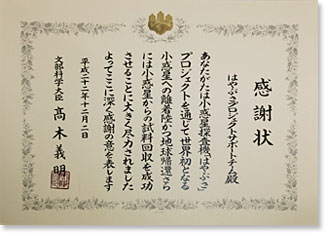 感謝状
はやぶさプロジェクトサポートチーム殿
あなたがたは小惑星探査機「はやぶさ」
プロジェクトを通して世界初となる
小惑星への離着陸かつ地球帰還さら
には小惑星からの試料回収を成功
させることに大きく尽力されました
よってここに深く感謝の意を表します
平成二十二年十二月二日
文部科学大臣 髙木義明